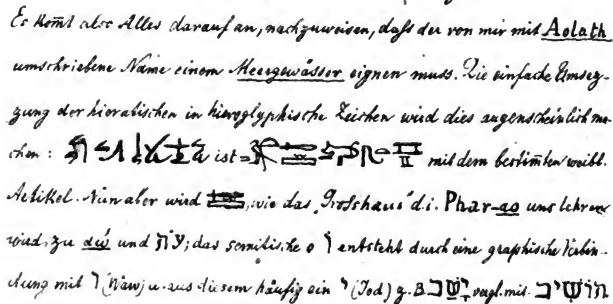 Es kom̄t also Alles darauf an, nachzuweisen, daſs der von mir mit Aolath
umschriebene Name einem Meergewässer eignen muss. Die einfache Umset-
zung der hieratischen in hieroglyphische Zeichen wird dies augenscheinlich ma-
chen: ist = mit dem bestim̄ten weibl.
Artikel. Nun aber wird , wie das „Grosshaus“ d. i. Phar-ao uns lehren
wird, zu und ; das semitische o ו entsteht durch eine graphische Verbin-
dung mit ו (Waw) u. aus diesem häufig ein י (Jod) z. B. vergl. mit